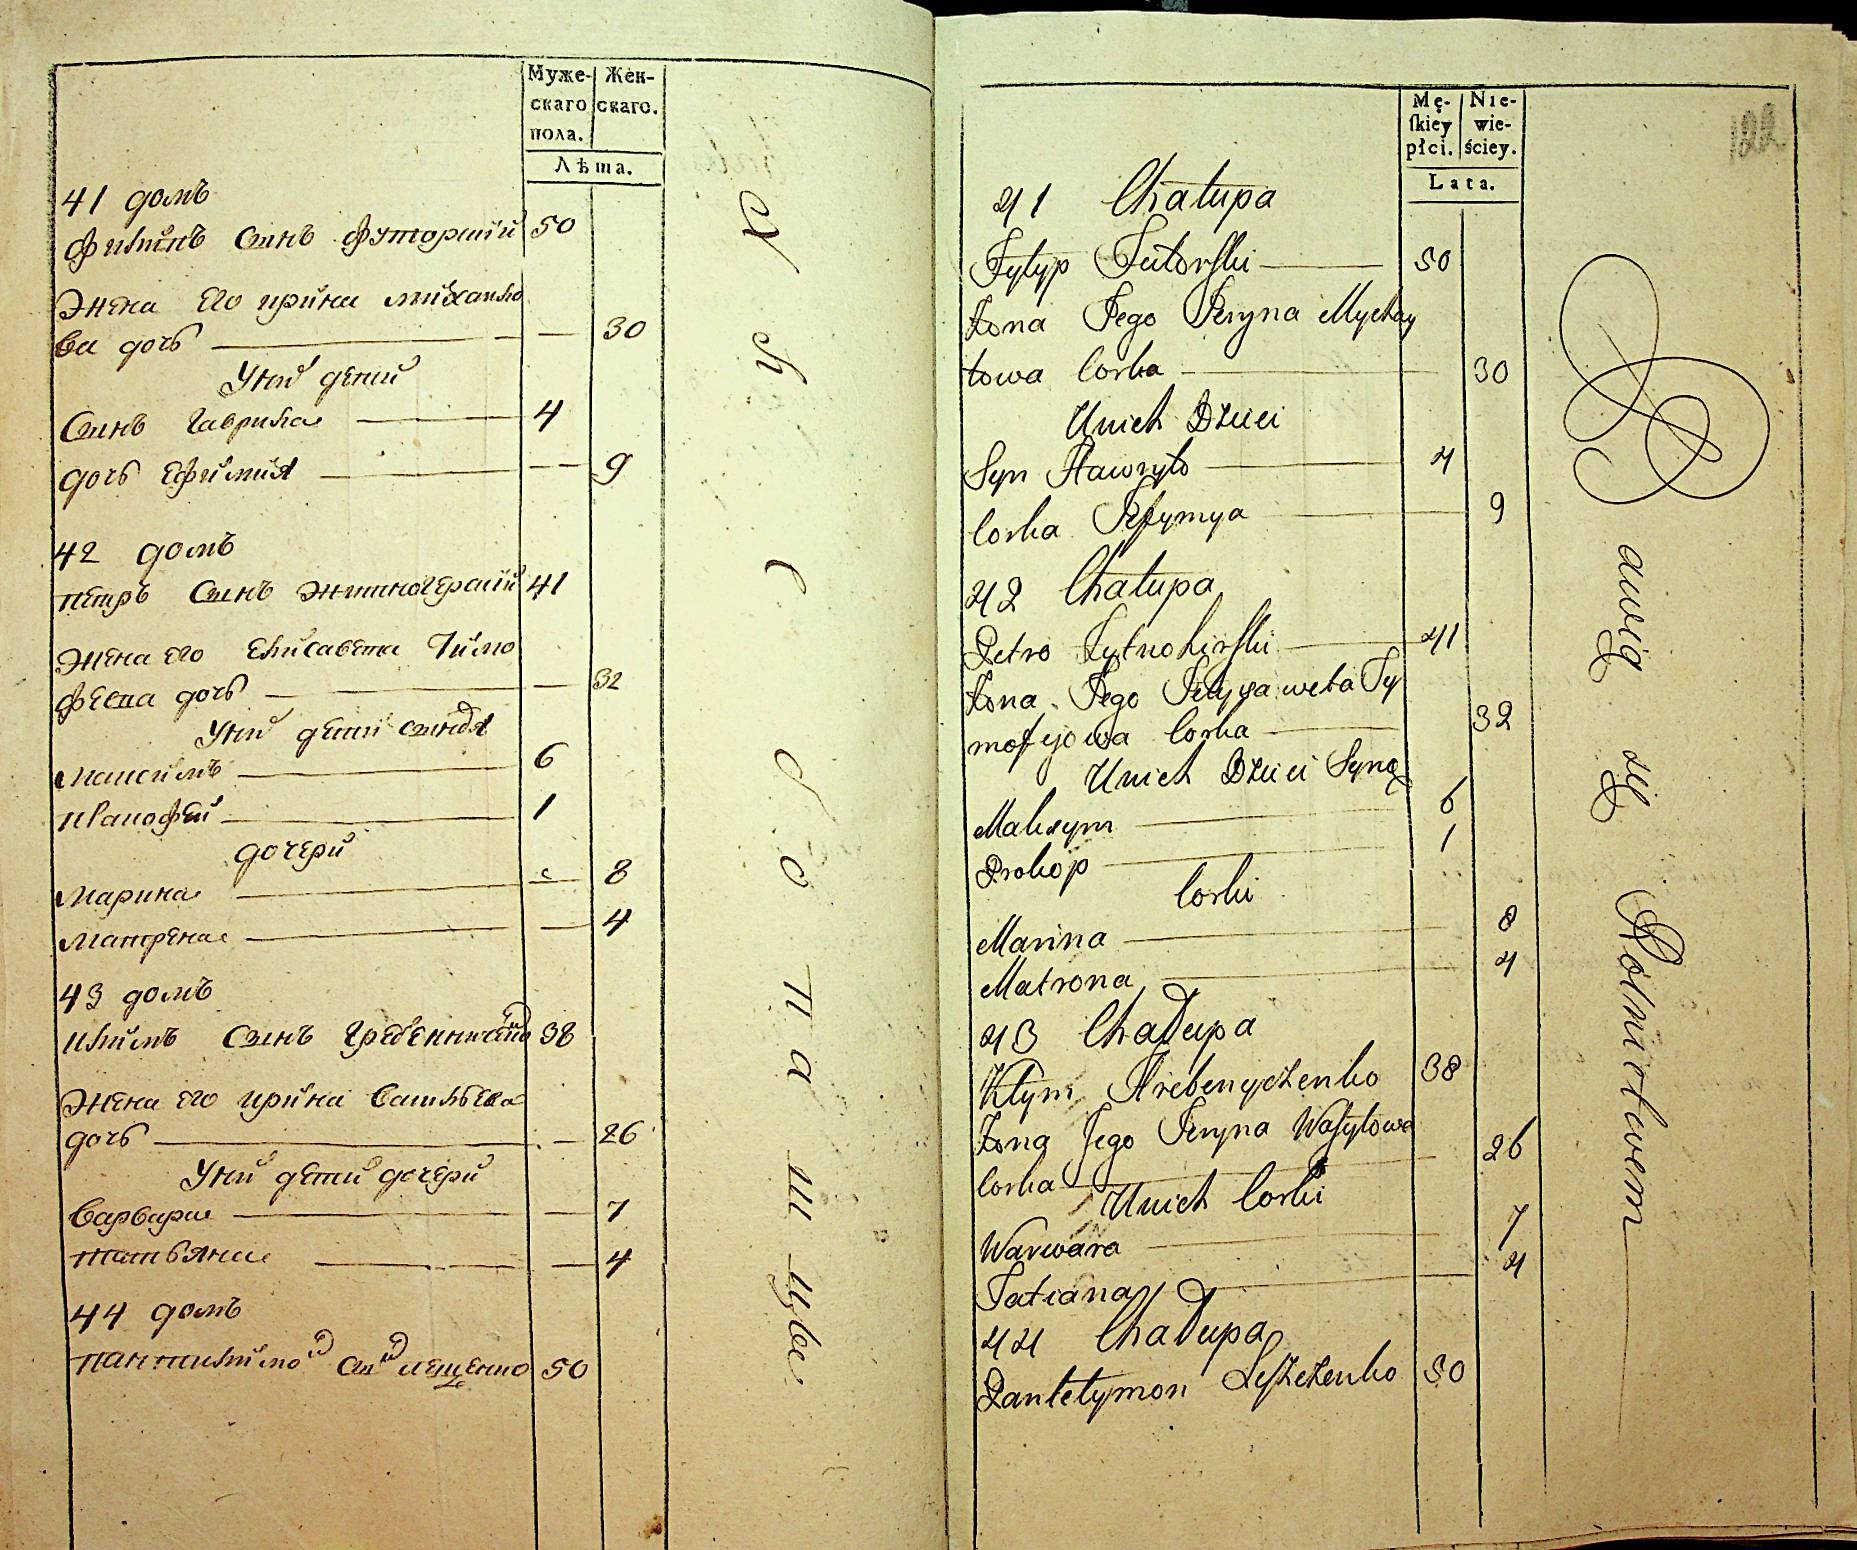 Муже-
скаго
пола.
Жен-
скаго.
Лѣта.
41 домъ
Филипъ Синъ Футорский 50
Жена Его ирина михаило
ва дочь 30
У них дети
Синъ гаврила 4
дочь ефимия 9
42 домъ
петръ Синъ Житногерский 41
Жена Его Елисавета Тимо
феева дочь 32
У них дети синовя
максимъ 6
прокофей 1
дочери
марина 8
матрена 4
43 домъ
климъ Синъ Гребенниченко 38
Жена Его ирина васильева
дочь 26
У них дети дочери
варвара 7
татьяна 4
44 домъ
пантилимон лещенко 50
хлебопашцы
122
Mę-
ſkiey
płci.
Nie-
wie-
ściey.
Lata.
41 Chałupa
Fylyp Futorſki 50
Żona Jego Jeryna Mychay
łowa Corka 30
Unich Dzieci
Syn Hawryło 4
Corka Jefymya 9
42 Chałupa
Petro Żytnohirſki 41
Żona Jego Jelyzaweta Ty
mofyjowa Corka 32
Unich Dzieci Syny
Maksym 6
Prokop 1
Corki
Marina 8
Matrona 4
43 Chałupa
Kłym Hrebenyczenko 38
Żona Jego Jeryna Waſylowa
Corka 26
Unich Corki
Warwara 7
Tatiana 4
44 Chałupa
Pantelymon Leſzczenko 50
Bawią się Rolnictwem